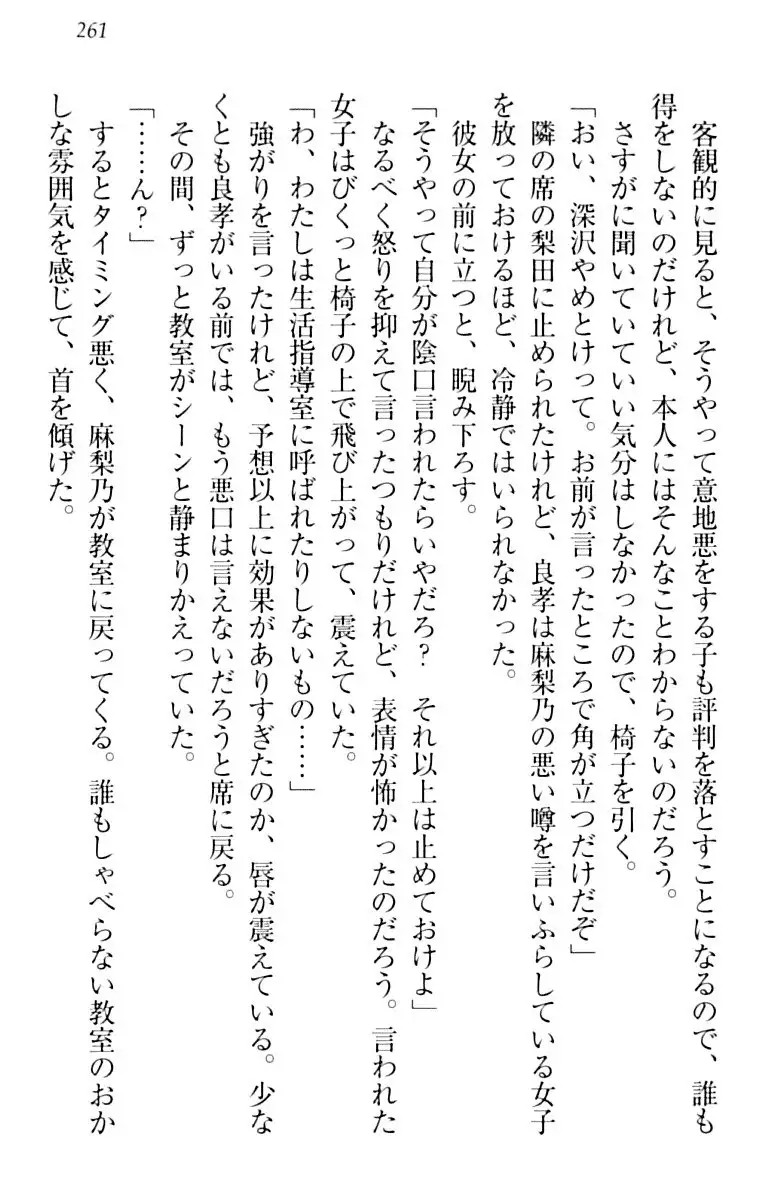 261
客観的に見ると、そうやって意地悪をする子も評判を落とすことになるので、誰も
得をしないのだけれど、本人にはそんなことわからないのだろう。
さすがに聞いていていい気分はしなかったので、椅子を引く。
「おい、深沢やめとけって。お前が言ったところで角が立つだけだぞ」
隣の席の梨田に止められたけれど、良孝は麻梨乃の悪い噂を言いふらしている女子
を放っておけるほど、冷静ではいられなかった。
彼女の前に立つと、睨み下ろす。
「そうやって自分が陰口言われたらいやだろ？　それ以上は止めておけよ」
なるべく怒りを抑えて言ったつもりだけれど、表情が怖かったのだろう。言われた
女子はびくっと椅子の上で飛び上がって、震えていた。
「わ、わたしは生活指導室に呼ばれたりしないもの……」
強がりを言ったけれど、予想以上に効果がありすぎたのか、唇が震えている。少な
くとも良孝がいる前では、もう悪口は言えないだろうと席に戻る。
その間、ずっと教室がシーンと静まりかえっていた。
「……ん？」
するとタイミング悪く、麻梨乃が教室に戻ってくる。誰もしゃべらない教室のおか
しな雰囲気を感じて、首を傾げた。